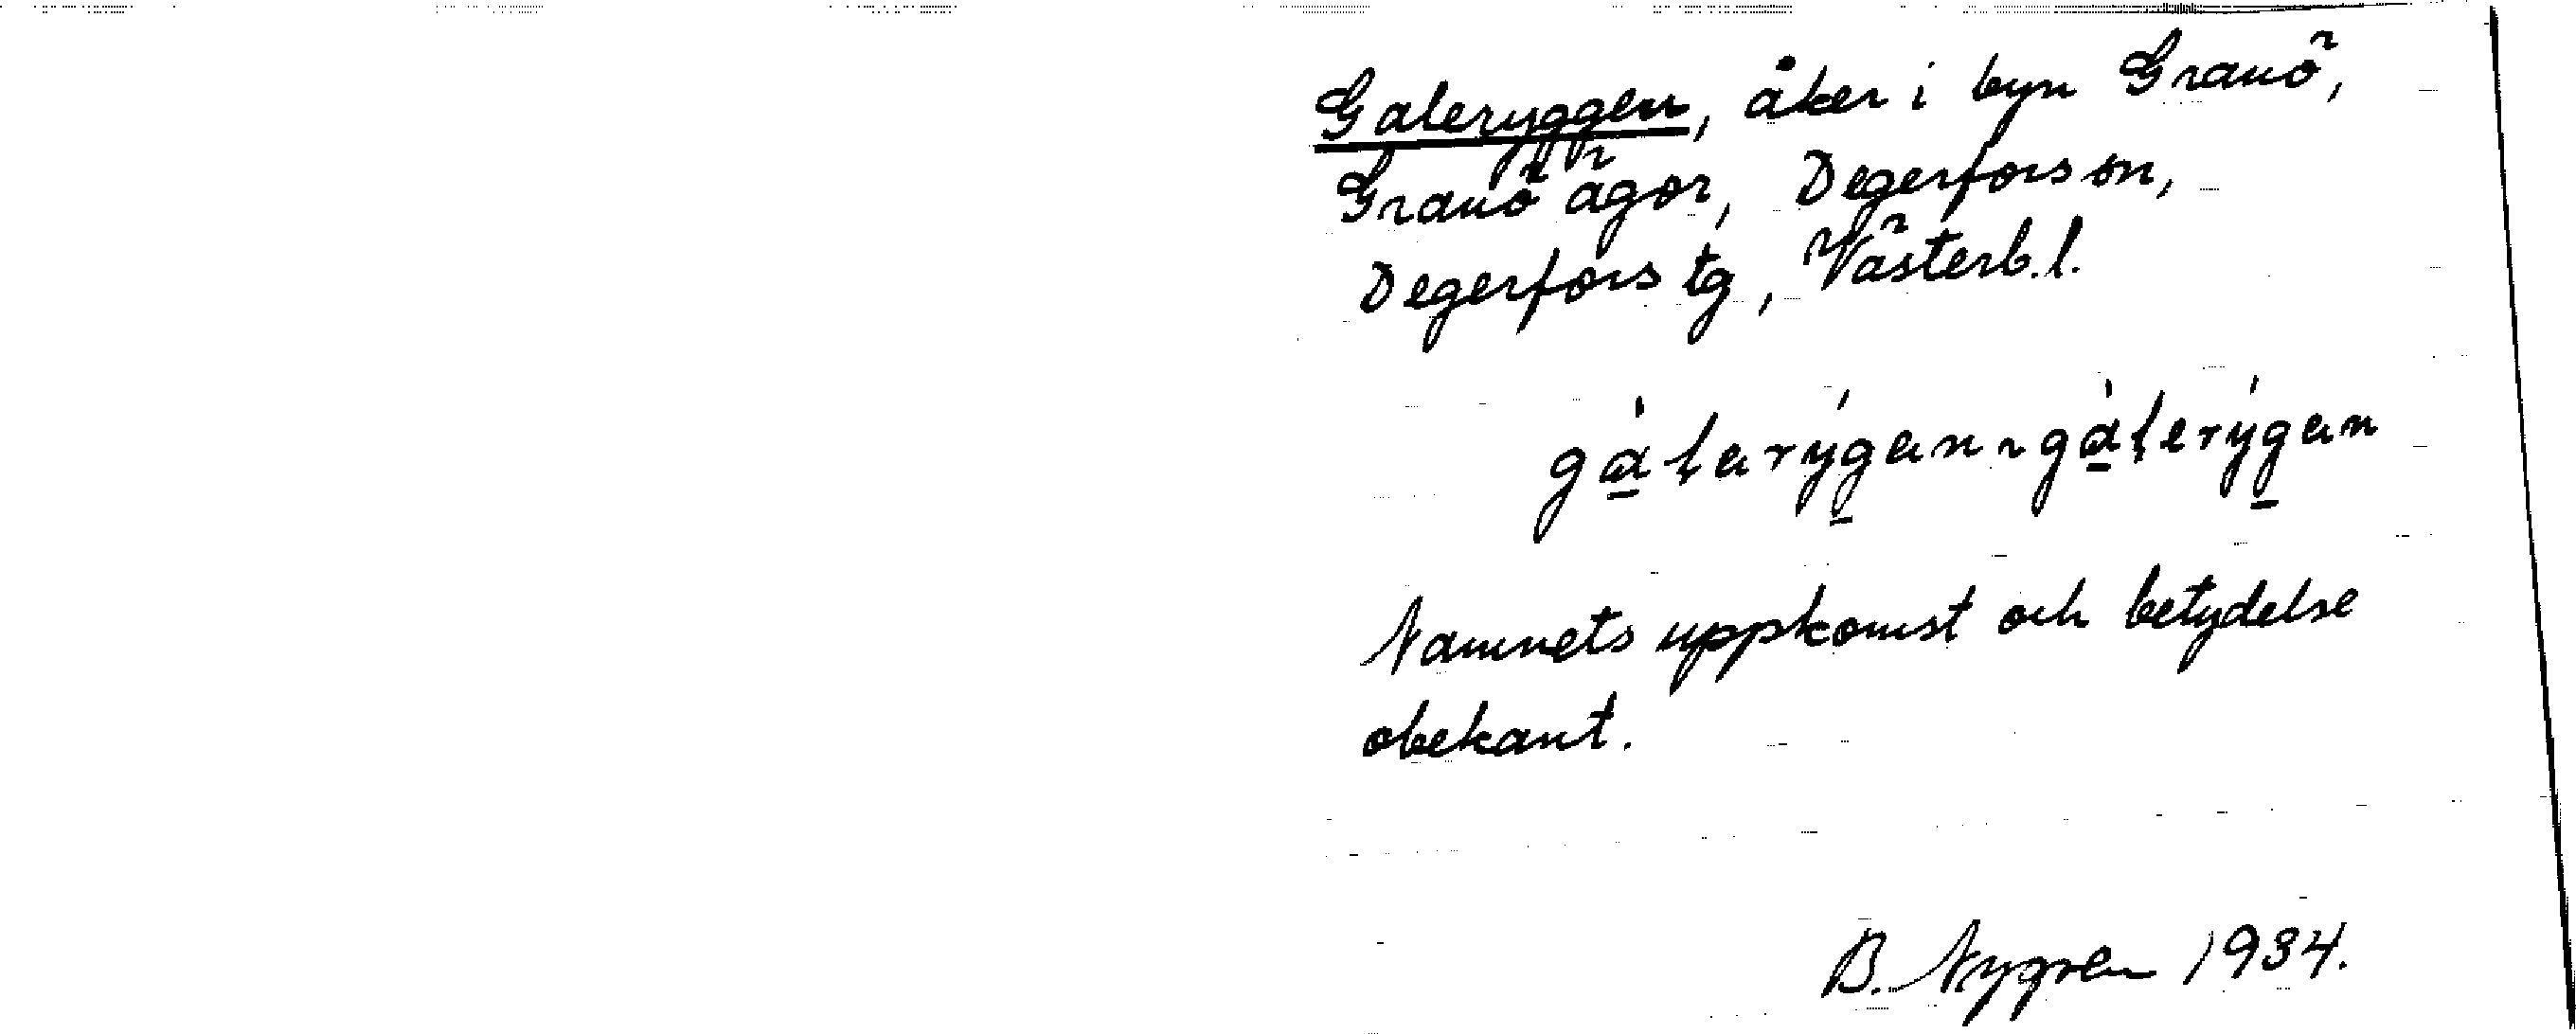 Galeryggen, åker i byn Granö,
Granö ägor, Degerfors sn,
Degerfors tg, Västerb. l.
gàlarýgan ~ gàlerýgan
Namnets uppkomst och betydelse
obekant.
B. Nygren 1934.